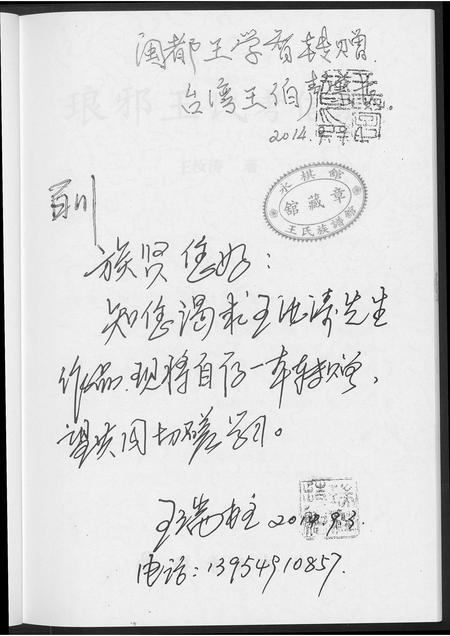 闽都王学智转赠
台湾王伯
2014.
水棋館
館藏章
王氏族譜館
族贤您好：
知您渴求王汝涛先生
作品.现将自存一本转赠，
望共同切磋学习。
王瑞柱 2014.9.3.
电话：13954910857.
琅邪王氏
王汝涛 著